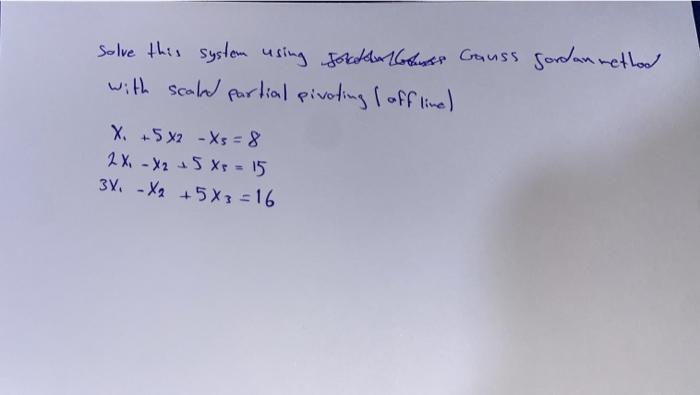 Solve this system using Gauss Jordan method
with scaled partial pivoting (off line)
X₁ +5X₂ -X₃ = 8
2X₁ -X₂ +5X₃ = 15
3X₁ -X₂ +5X₃ = 16